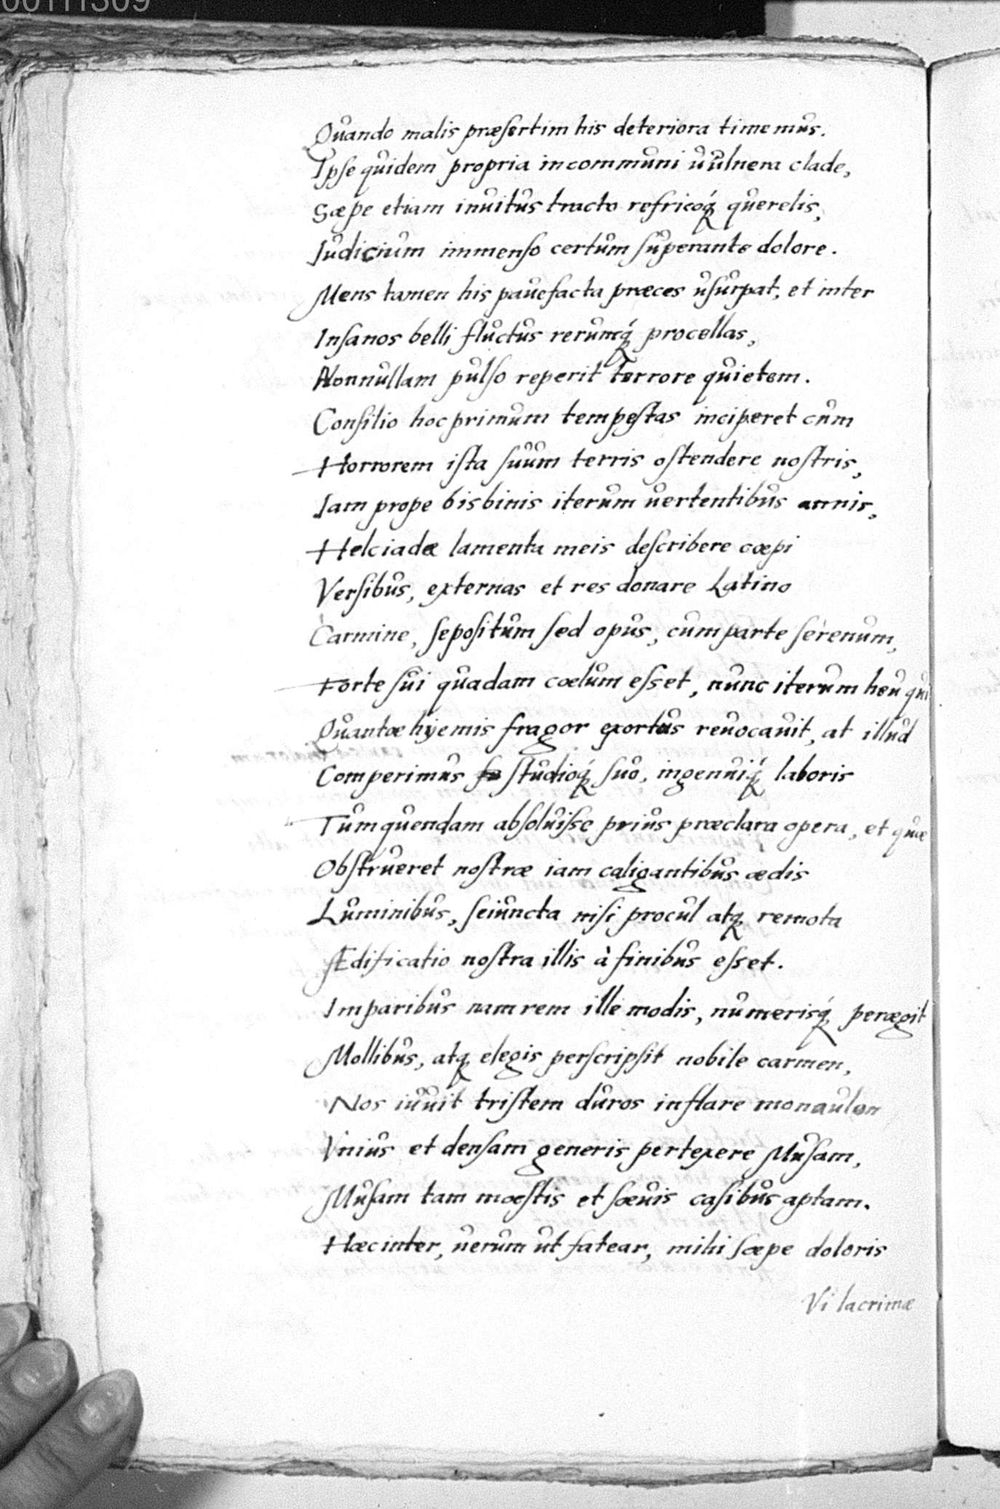 00111309
Quando malis præsertim his deteriora timemus.
Ipse quidem propria in communi vulnera clade,
Sæpe etiam inuitus tracto refricoq́ querelis,
Judicium immenso certum superante dolore.
Mens tamen his pauefacta præces usurpat, et inter
Insanos belli fluctus rerumq́ procellas,
Nonnullam pulso reperit terrore quietem.
Consilio hoc primum tempestas inciperet cum
Horrorem ista suum terris ostendere nostris,
Iam prope bisbinis iterum uertentibus annis,
Helciadæ lamenta meis describere cœpi
Versibus, externas et res donare Latino
Carmine, sepositum sed opus, cum parte serenum,
Forte sui quadam cœlum esset, nunc iterum heu qui
Quantæ hyemis fragor exortus reuocauit, at illud
Comperimus studioq́ suo, ingenuiq́ laboris
Tum quendam absoluisse prius præclara opera, et quæ
Obstrueret nostræ iam caligantibus ædis
Luminibus, seiuncta nisi procul atq remota
Ædificatio nostra illis à finibus esset.
Imparibus nam rem ille modis, numerisq́ peregit
Mollibus, atq elegis perscripsit nobile carmen,
Nos iuuit tristem duros inflare monaulon
Vnius et densam generis pertexere Musam,
Musam tam mœstis et sæuis casibus aptam.
Hæc inter, uerum ut fatear, mihi sæpe doloris
Vi lacrimæ